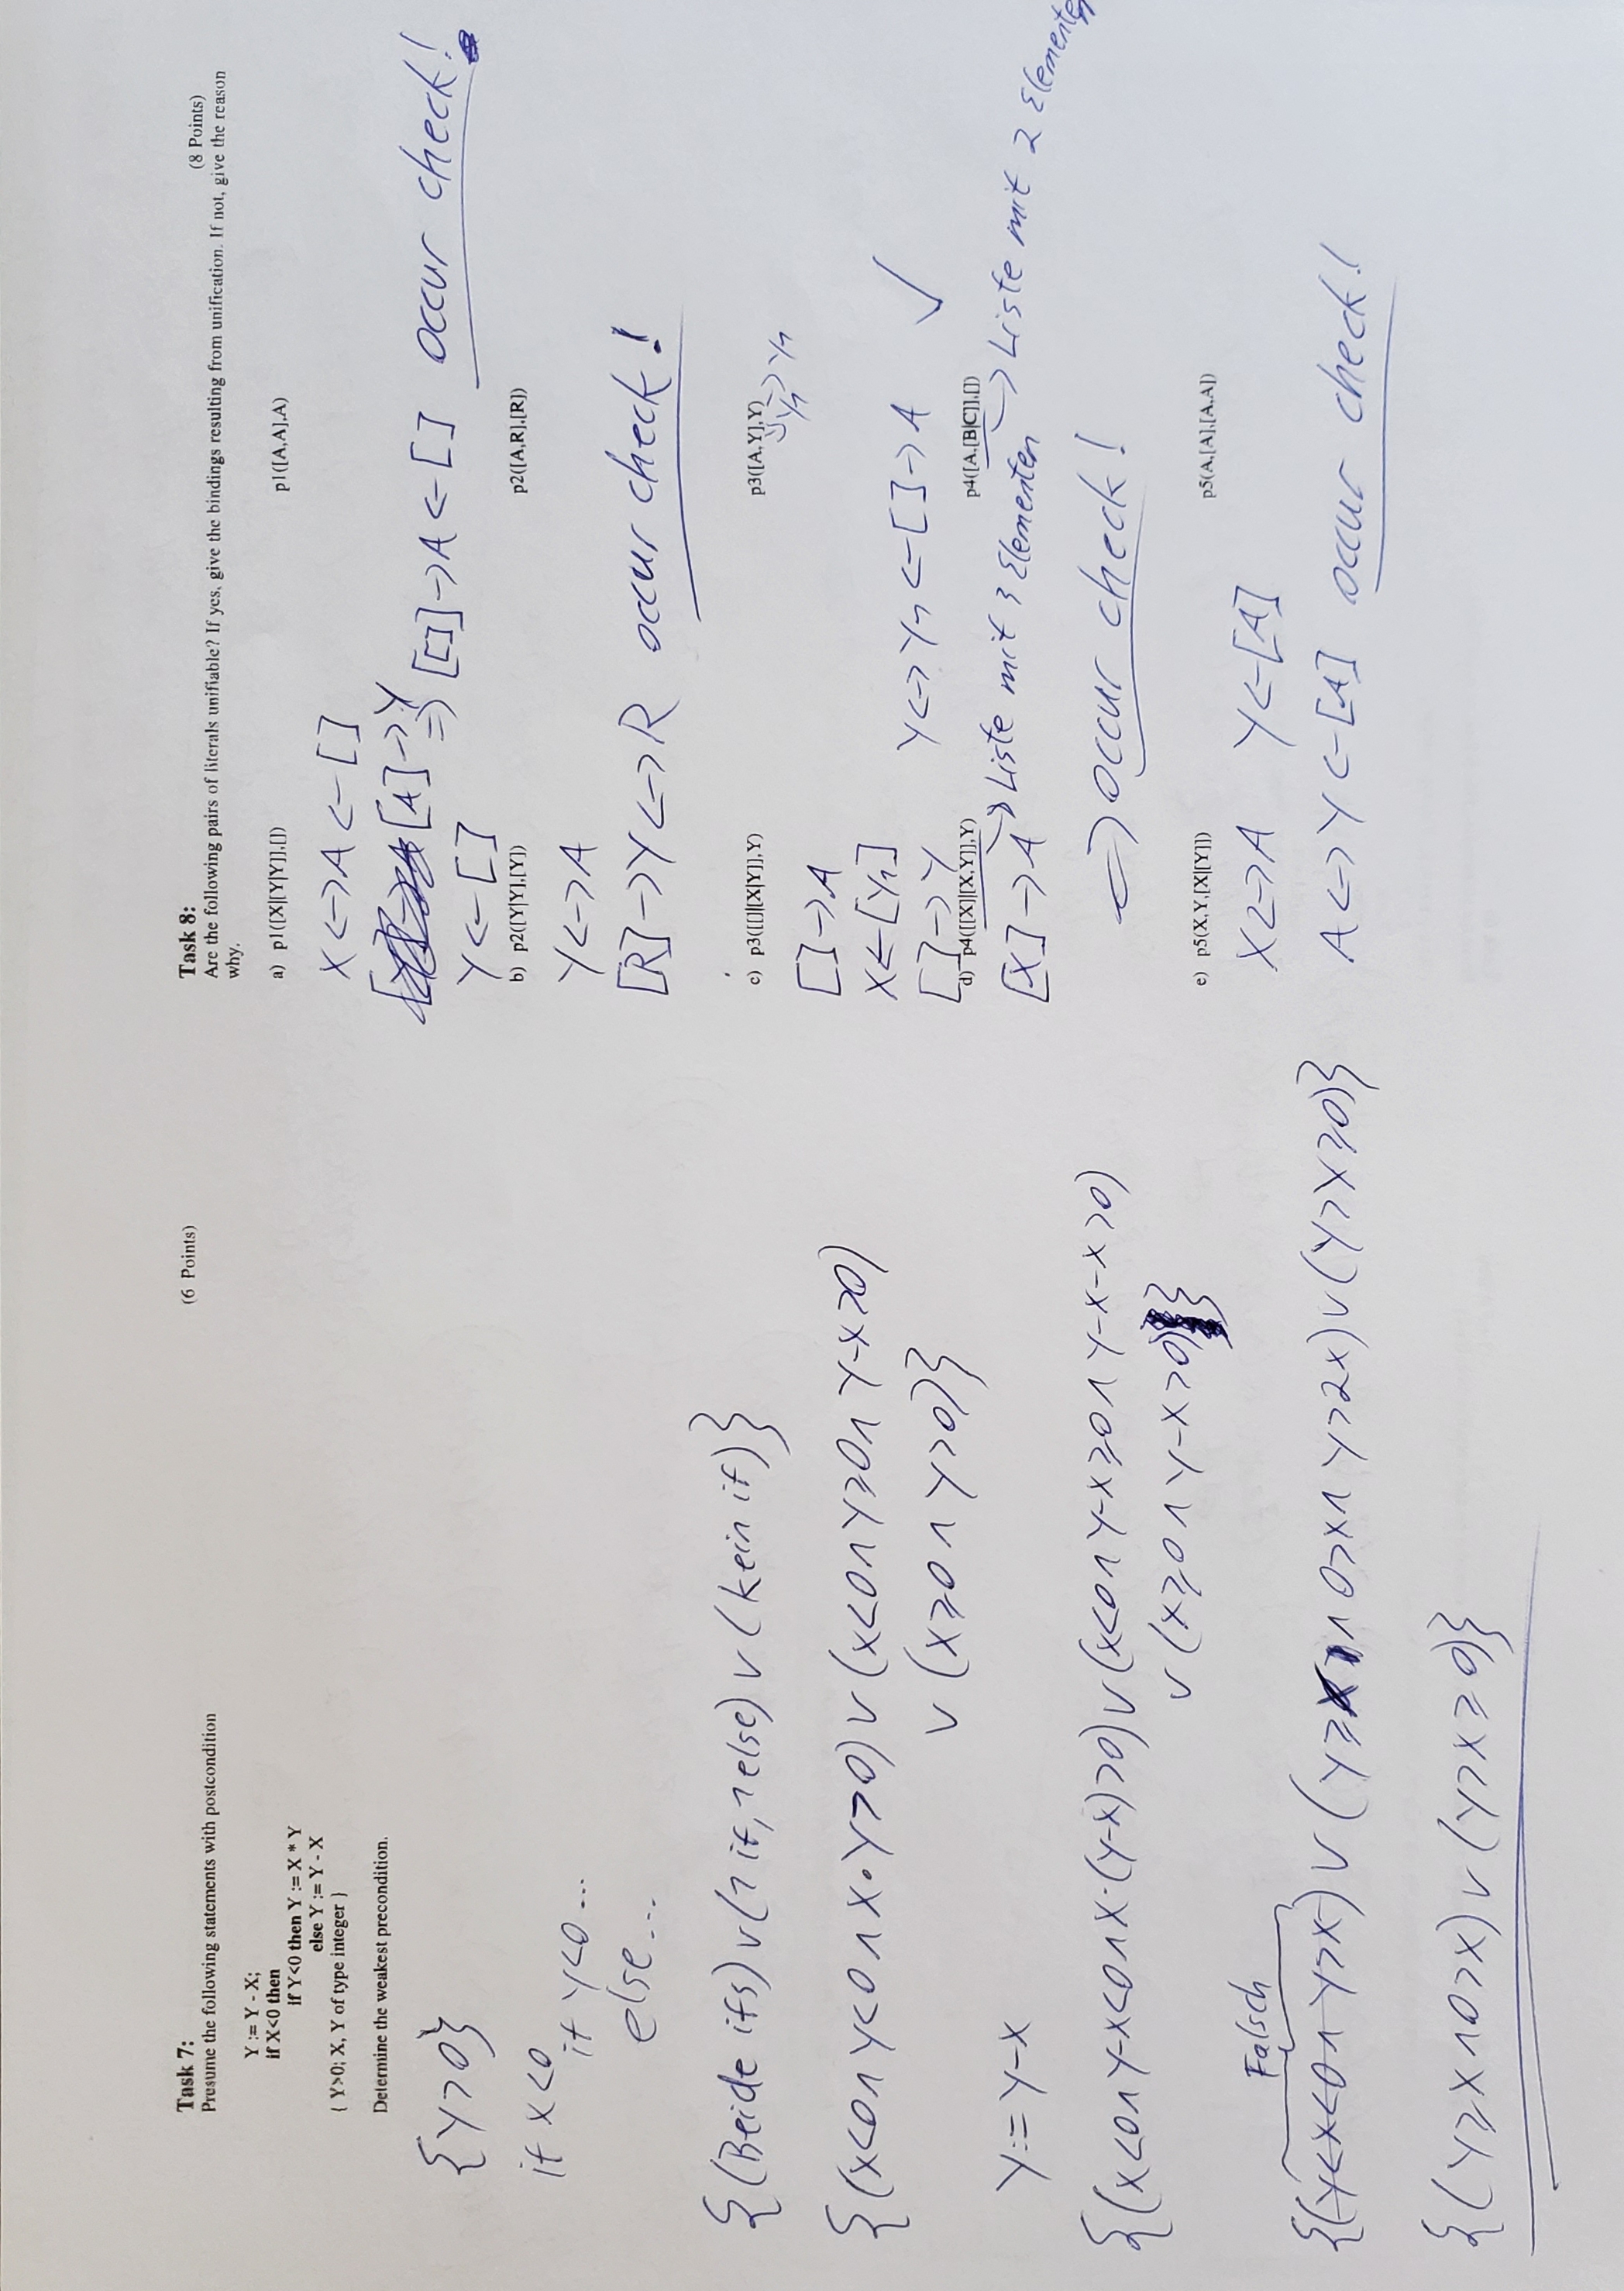 Task 7:
(6 Points)
Presume the following statements with postcondition
Y := Y - X;
if X<0 then
if Y<0 then Y := X * Y
else Y := Y - X
{ Y>0; X, Y of type integer }
Determine the weakest precondition.
{Y>0}
if X<0
if Y<0 ...
else ...
{(Beide ifs) ∨ (1 if, 1 else) ∨ (kein if)}
{(X<0 ∧ Y<0 ∧ X·Y>0) ∨ (X<0 ∧ Y≥0 ∧ Y-X>0)
∨ (X≥0 ∧ Y>0)}
Y:=Y-X
{(X<0 ∧ Y-X<0 ∧ X·(Y-X)>0) ∨ (X<0 ∧ Y-X≥0 ∧ Y-X-X>0)
∨ (X≥0 ∧ Y-X>0)}
Falsch
{(Y<X<0 ∧ Y>X) ∨ (Y≥X ∧ 0>X ∧ Y>2X) ∨ (Y>X≥0)}
{(Y≥X ∧ 0>X) ∨ (Y>X≥0)}
Task 8:
(8 Points)
Are the following pairs of literals unifiable? If yes, give the bindings resulting from unification. If not, give the reason
why.
a) p1([X|[Y|Y]],[]) p1([A,A],A)
X <-> A <- []
[A] -> Y
=> [[]] -> A <- [] occur check!
Y <- []
b) p2([Y|Y],[Y]) p2([A,R],[R])
Y <-> A
[R] -> Y <-> R occur check!
c) p3([[]|[X|Y]],Y) p3([A,Y],Y)
Y1 -> Y1
[] -> A
X <- [Y1]
[] -> Y Y <-> Y1 <- [] -> A ✓
d) p4([[X]|[X,Y]],Y) p4([A,[B|C]],[])
[X] -> A -> Liste mit 3 Elementen -> Liste mit 2 Elementen
=> occur check!
e) p5(X,Y,[X|[Y]]) p5(A,[A],[A,A])
X <-> A Y <- [A]
A <-> Y <- [A] occur check!